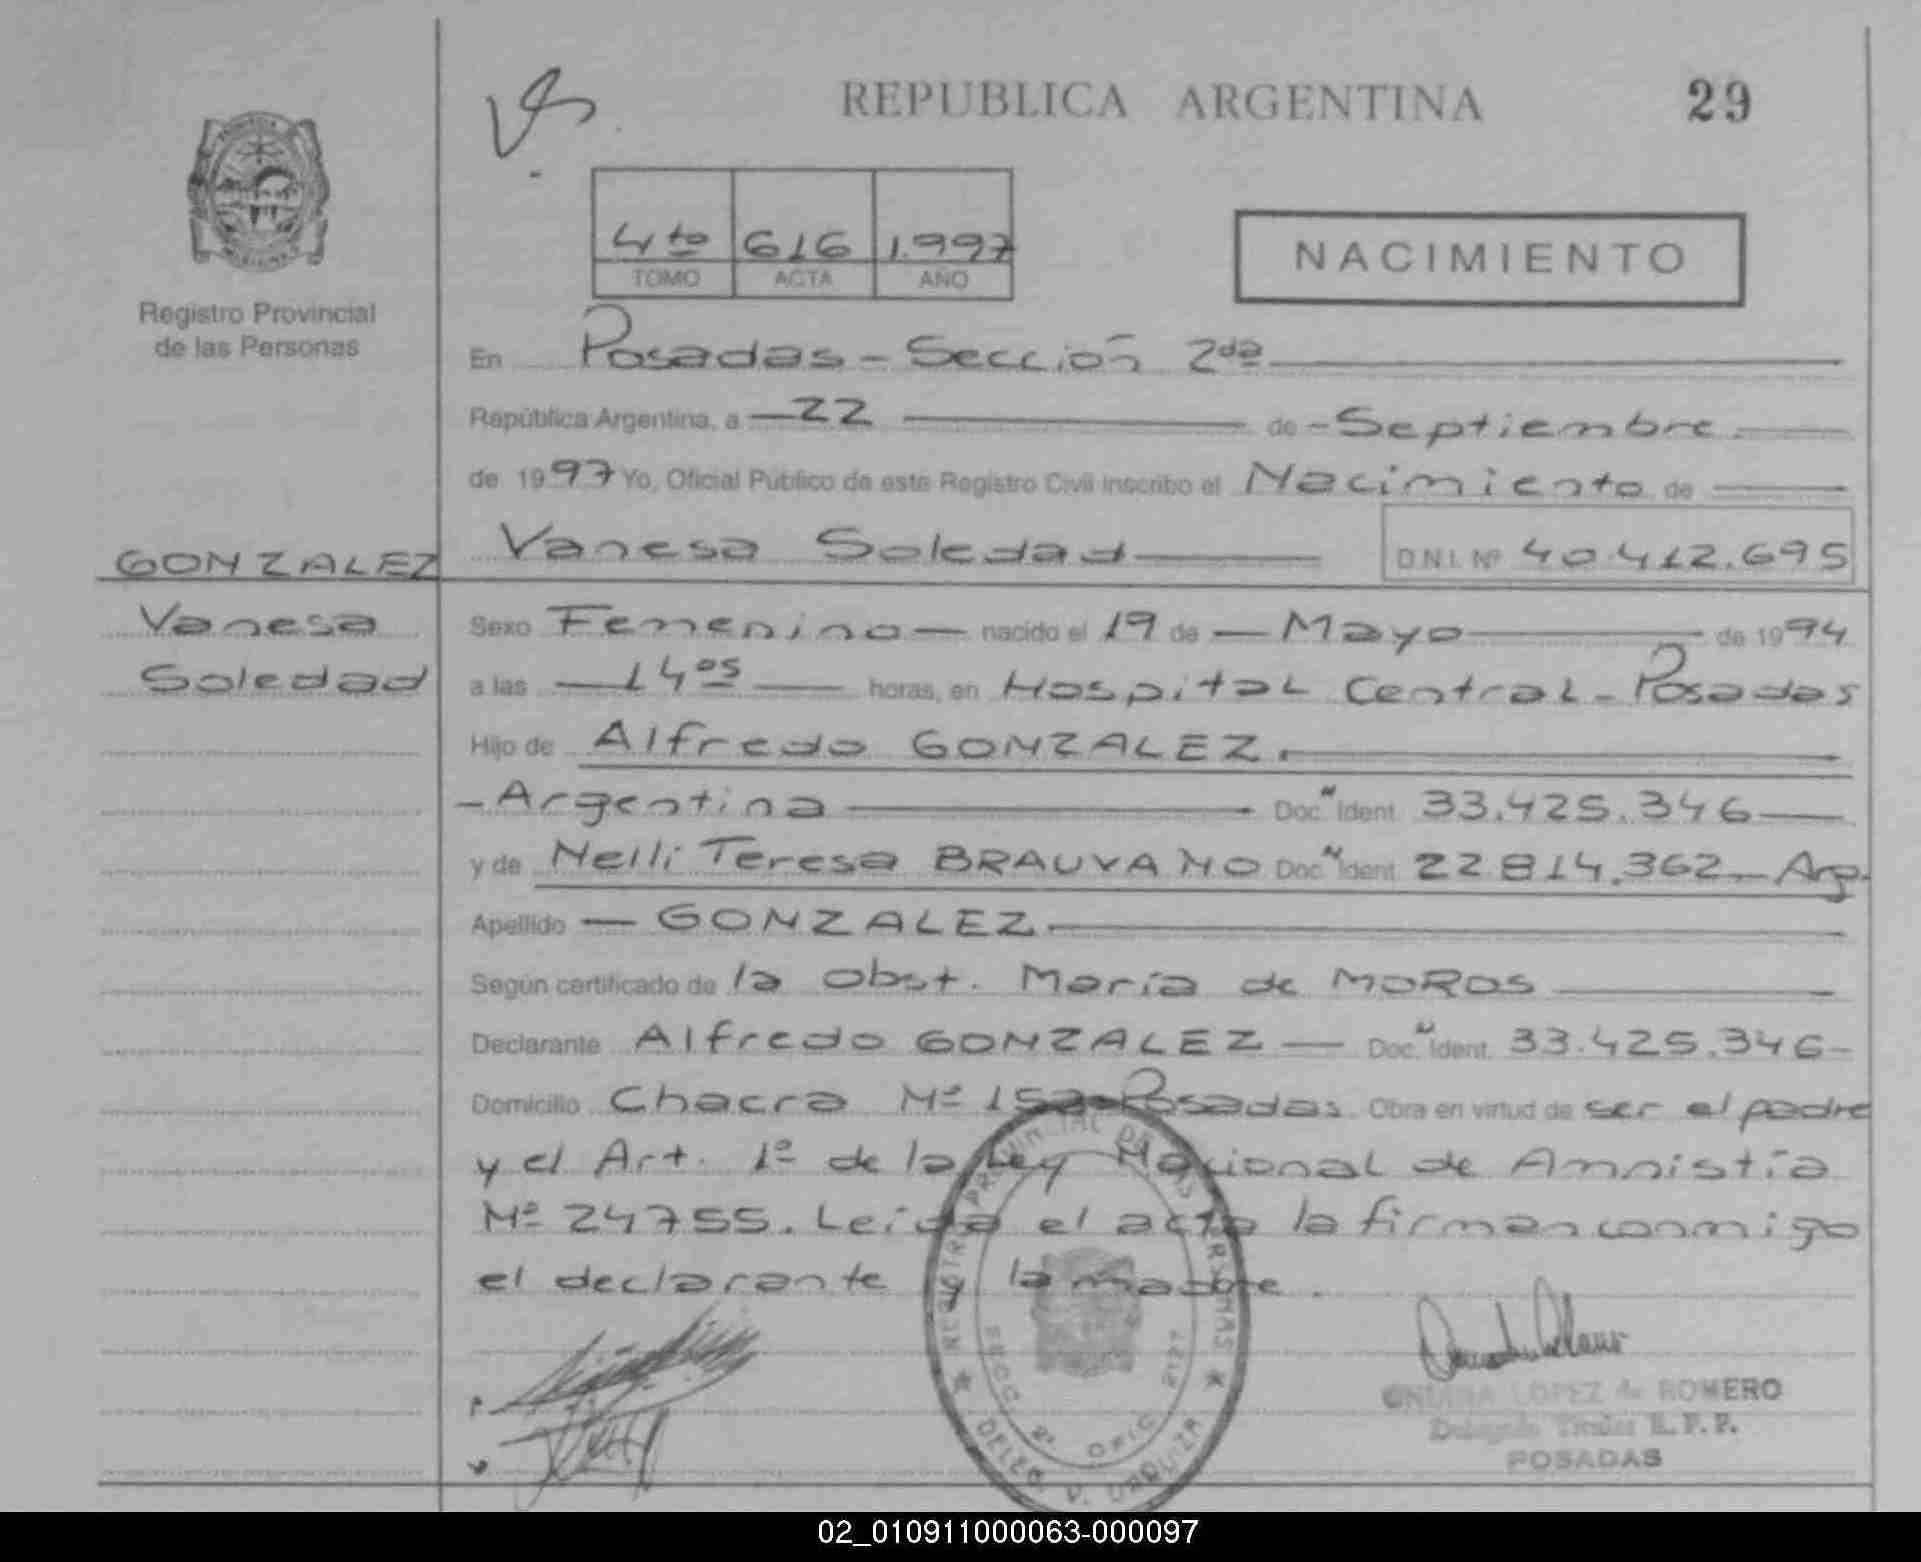 REPUBLICA ARGENTINA 29
4to 616 1.997
TOMO ACTA AÑO
NACIMIENTO
Registro Provincial
de las Personas
En Posadas - Sección 2da
República Argentina, a 22 de Septiembre.
de 1997 Yo, Oficial Público de este Registro Civil inscribo el Nacimiento de
Vanesa Soledad D.N.I. Nº 40.412.695
GONZALEZ
Vanesa
Soledad
Sexo Femenino nacido el 19 de Mayo de 1994
a las 14os horas, en Hospital Central - Posadas
Hijo de Alfredo GONZALEZ.
- Argentina Doc. Ident. 33.425.346
y de Nelli Teresa BRAUVANO Doc. Ident. 22.814.362 - Arg.
Apellido GONZALEZ.
Según certificado de la Obst. María de MOROS
Declarante Alfredo GONZALEZ Doc. Ident. 33.425.346
Domicilio Chacra Nº Posadas. Obra en virtud de ser el padre
y el Art. 1º de la Ley Nacional de Amnistía
Nº 24755. Leída el acta la firman conmigo
el declarante y la madre.
REGISTRO PROVINCIAL DE LAS PERSONAS
SECC. 2ª OFIC.
DELEG. P. URQUIZA
LOPEZ de ROMERO
POSADAS
02_010911000063-000097